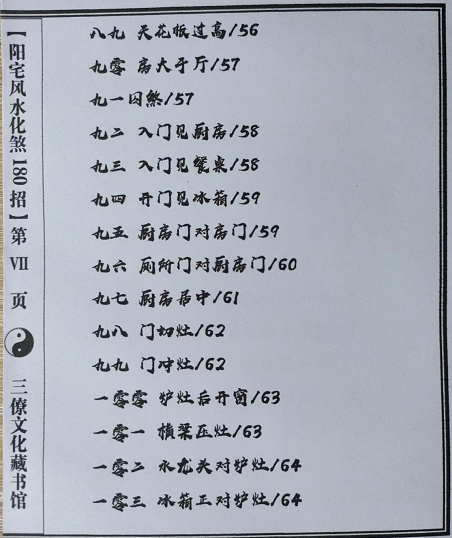 【阳宅风水化煞180招】第 VII 页 三僚文化藏书馆
八九 天花板过高/56
九零 房大于厅/57
九一囚煞/57
九二 入门见厨房/58
九三 入门见餐桌/58
九四 开门见冰箱/59
九五 厨房门对房门/59
九六 厕所门对厨房门/60
九七 厨房居中/61
九八 门切灶/62
九九 门冲灶/62
一零零 炉灶后开窗/63
一零一 横梁压灶/63
一零二 水龙头对炉灶/64
一零三 冰箱正对炉灶/64